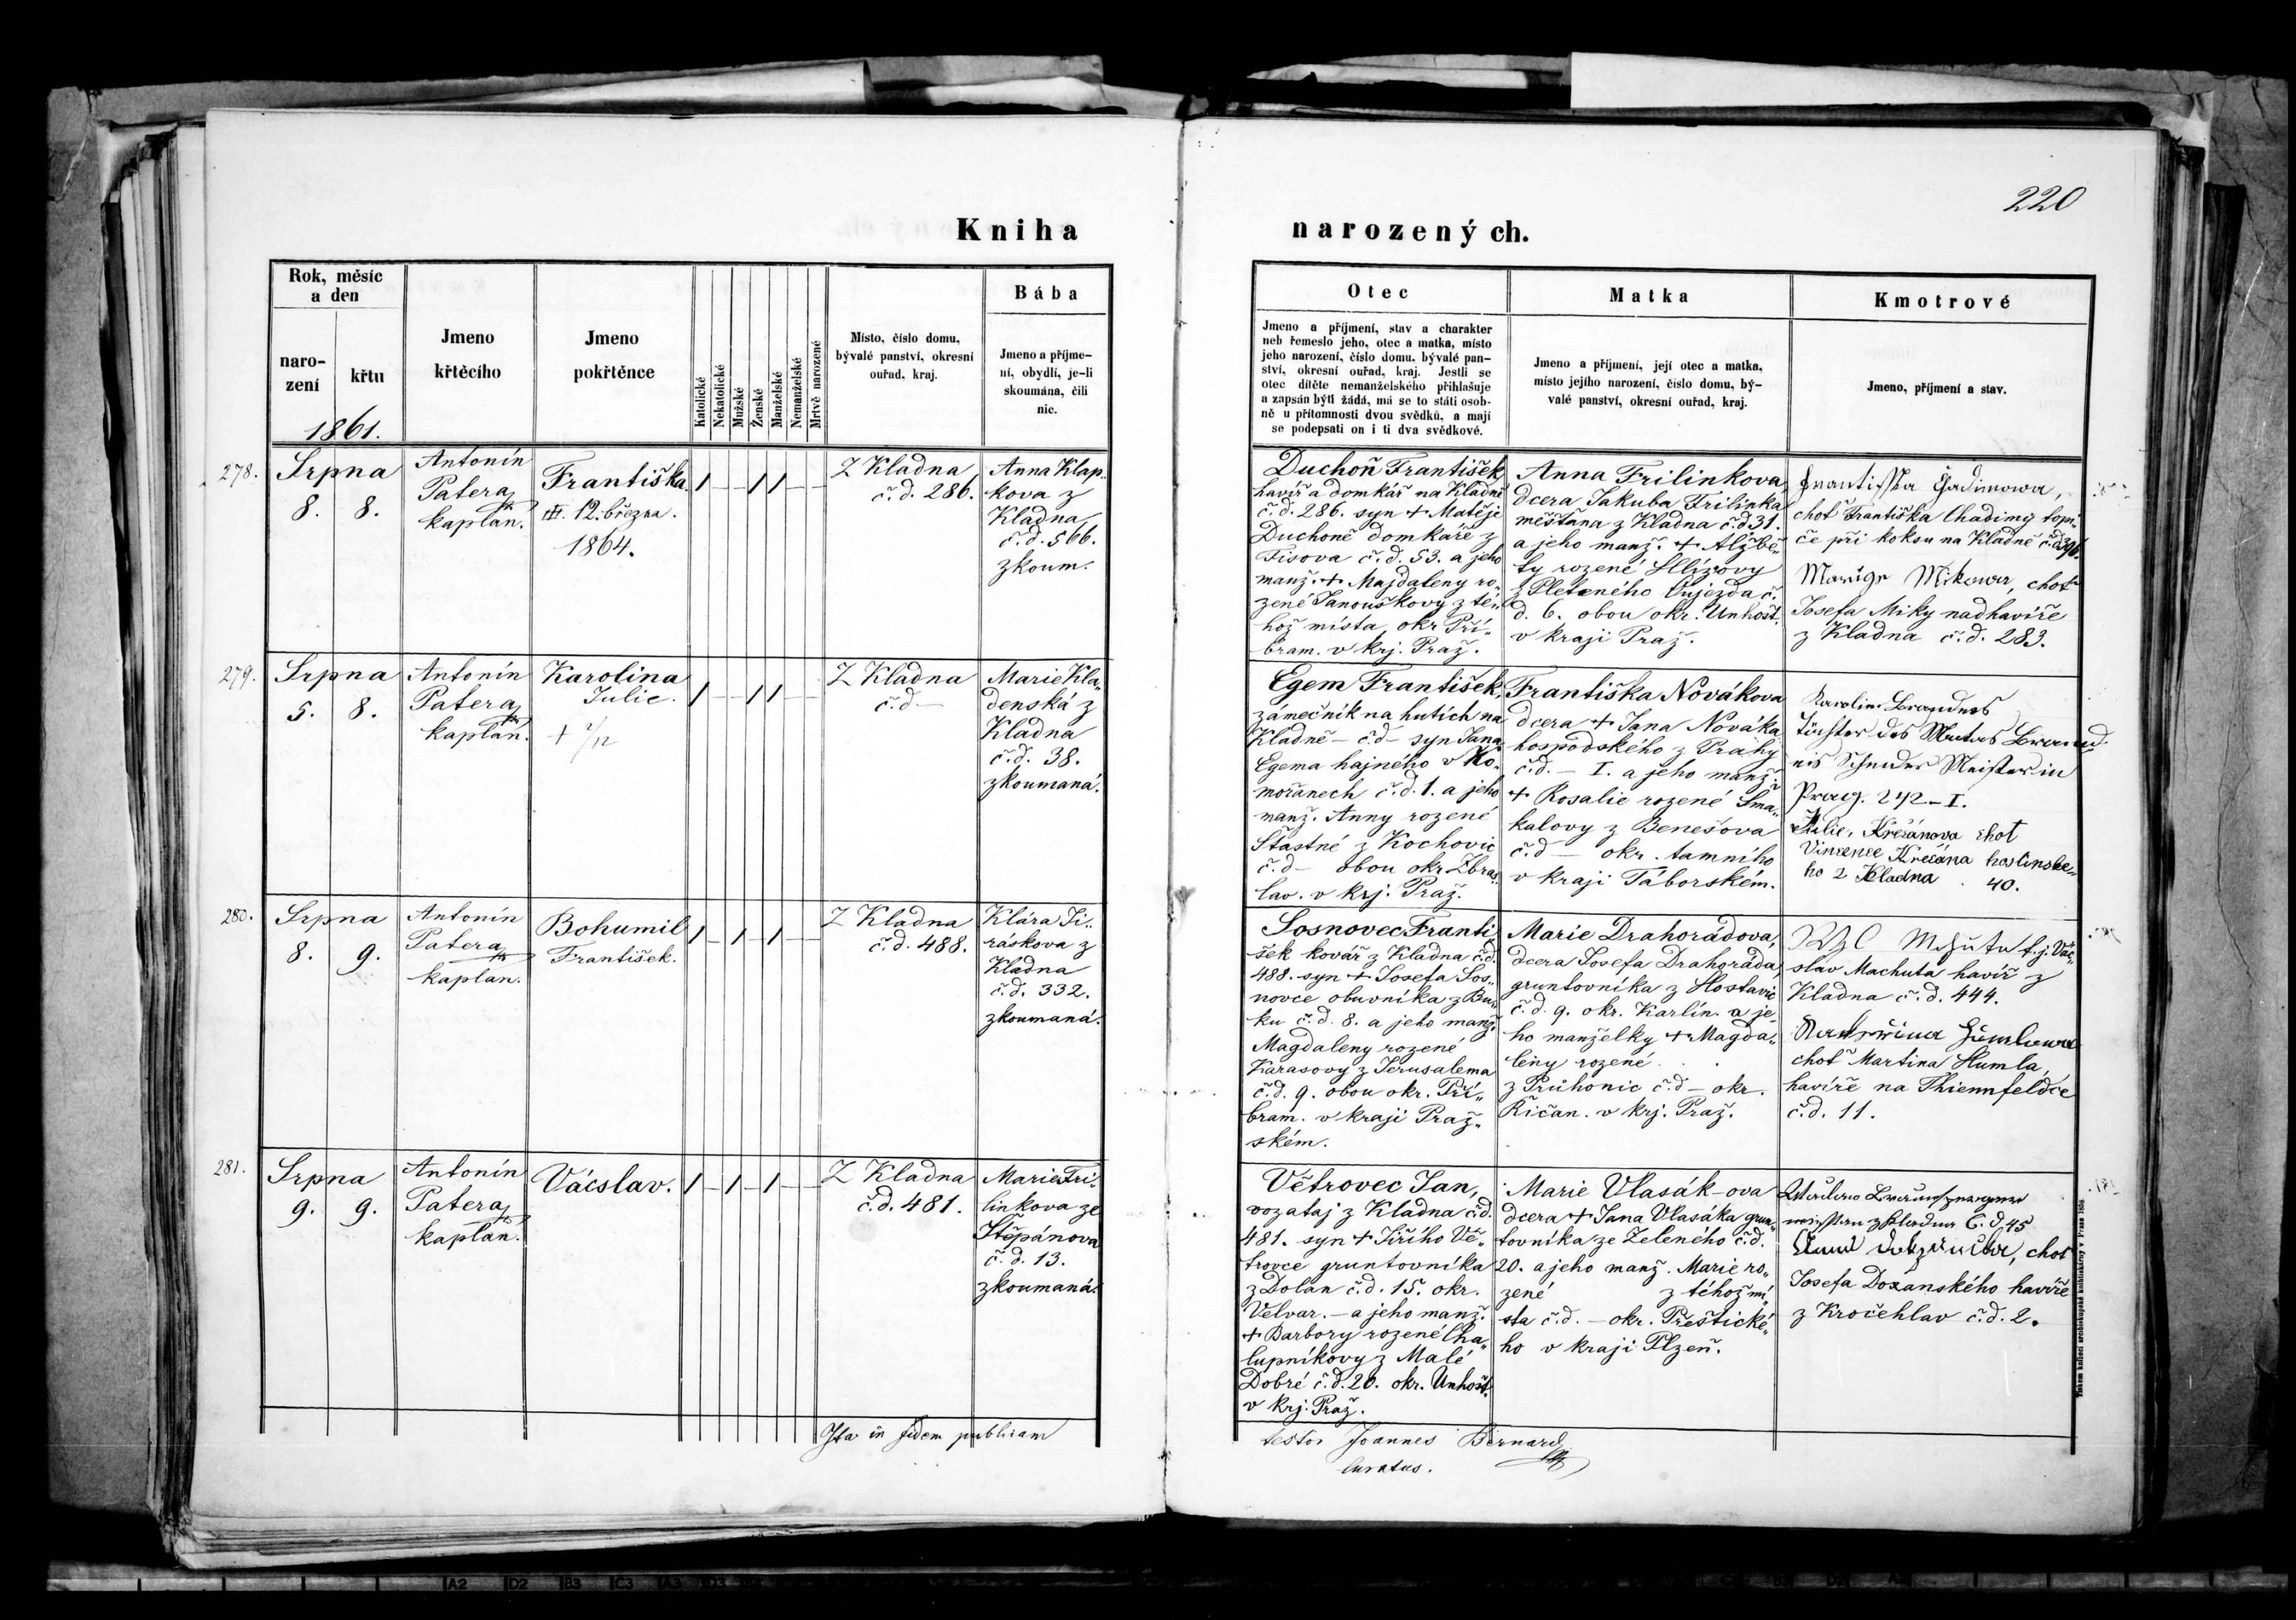 220
Kniha
narozených.
Rok, měsíc
a den
naro-
zení
křtu
1861.
Jmeno
křtěcího
Jmeno
pokřtěnce
Katolické
Nekatolické
Mužské
Ženské
Manželské
Nemanželské
Mrtvě narozené
Místo, číslo domu,
bývalé panství, okresní
ouřad, kraj.
Bába
Jmeno a příjme-
ní, obydlí, je-li
skoumána, čili
nic.
Otec
Jmeno a příjmení, stav a charakter
neb řemeslo jeho, otec a matka, místo
jeho narození, číslo domu, bývalé pan-
ství, okresní ouřad, kraj. Jestli se
otec dítěte nemanželského přihlašuje
a zapsán býti žádá, má se to státi osob-
ně u přítomnosti dvou svědků, a mají
se podepsati on i ti dva svědkové.
Matka
Jmeno a příjmení, její otec a matka,
místo jejího narození, číslo domu, bý-
valé panství, okresní ouřad, kraj.
Kmotrové
Jmeno, příjmení a stav.
278.
Srpna
8. 8.
Antonín
Patera
kaplan.
Františka
12. března.
1864.
Z Kladna
č. d. 286.
Anna Klap-
kova z
Kladna
č. d. 566.
zkoum.
Duchoň František,
havíř a domkář na Kladně
č. d. 286. syn + Matěje
Duchoně domkáře z
Tisova č. d. 53. a jeho
manž. + Majdaleny ro-
zené Janouškovy z té-
hož místa, okr. Pří-
bram. v krj. Praž.
Anna Frilinkova,
dcera Jakuba Frilinka
měšťana z Kladna č. d. 31.
a jeho manž. + Alžbě-
ty rozené Hlízovy
z Pleteného Oujezda č.
d. 6. obou okr. Unhošt.
v kraji Praž.
Frantisska Hadimowa,
choť Františka Chadimy topi-
če při koksu na Kladně č. d. 396.
Marige Mikowa, choť
Josefa Miky nadhavíře
z Kladna č. d. 283.
279.
Srpna
5. 8.
Antonín
Patera
kaplan.
Karolina
Julie.
Z Kladna
č. d —
Marie Kla-
denská z
Kladna
č. d. 38.
zkoumaná.
Egem František,
zámečník na hutích na
Kladně — č. d — syn Jana
Egema hajného v Ko-
mořanech č. d. 1. a jeho
manž. Anny rozené
Štastné z Kochovic
č. d — obou okr. Zbras-
lav. v krj. Praž.
Františka Novákova
dcera + Jana Nováka
hospodského z Prahy
č. d. — I. a jeho manž.
+ Rosalie rozené Sma-
kalovy z Benešova
č. d — okr. tamního
v kraji Táborském.
Karolin Brandeis
Tochter des Brand-
eis Schneider Meister in
Prag. 242 – I.
Julie, Křečánova choť
Vincence Křečána hostinské-
ho z Kladna 40.
280.
Srpna
8. 9.
Antonín
Patera
kaplan.
Bohumil
František.
Z Kladna
č. d. 488.
Klára Ji-
ráskova z
Kladna
č. d. 332.
zkoumaná.
Sosnovec Franti-
šek kovář z Kladna č. d.
488. syn + Josefa Sos-
novce obuvníka z Bu-
ku č. d. 8. a jeho manž.
Magdaleny rozené
Karasovy z Jerusalema
č. d. 9. obou okr. Pří-
bram. v kraji Praž-
ském.
Marie Drahorádova,
dcera Josefa Drahoráda,
gruntovníka z Hostavic
č. d. 9. okr. Karlín. a je-
ho manželky + Magda-
leny rozené
z Průhonic č. d — okr.
Řičan. v krj. Praž.
t. j. Vác-
slav Machuta havíř z
Kladna č. d. 444.
Kateřina Humlowa
choť Martina Humla,
havíře na Thiennfeldce
č. d. 11.
281.
Srpna
9. 9.
Antonín
Patera
kaplan.
Václav.
Z Kladna
č. d. 481.
Marie Fri-
linkova ze
Štěpánova
č. d. 13.
zkoumaná.
Větrovec Jan,
vozataj z Kladna č. d.
481. syn + Jiřího Vě-
trovce gruntovníka
z Dolan č. d. 15. okr.
Velvar. — a jeho manž.
+ Barbory rozené Cha-
lupníkovy z Malé
Dobré č. d. 20. okr. Unhošt.
v krj. Praž.
Marie Vlasák-ova
dcera + Jana Vlasáka grun-
tovníka ze Zeleného č. d.
20. a jeho manž. Marie ro-
zené z téhož mí-
sta č. d. — okr. Přeštické-
ho v kraji Plzeň.
z Kladna č. d. 45
choť
Josefa Dozanského havíře
z Kročehlav č. d. 2.
Ita in fidem publicam
testor Joannes Bernard
curatus.
Tiskem knížecí arcibiskupské knihtiskárny v Praze 1858.